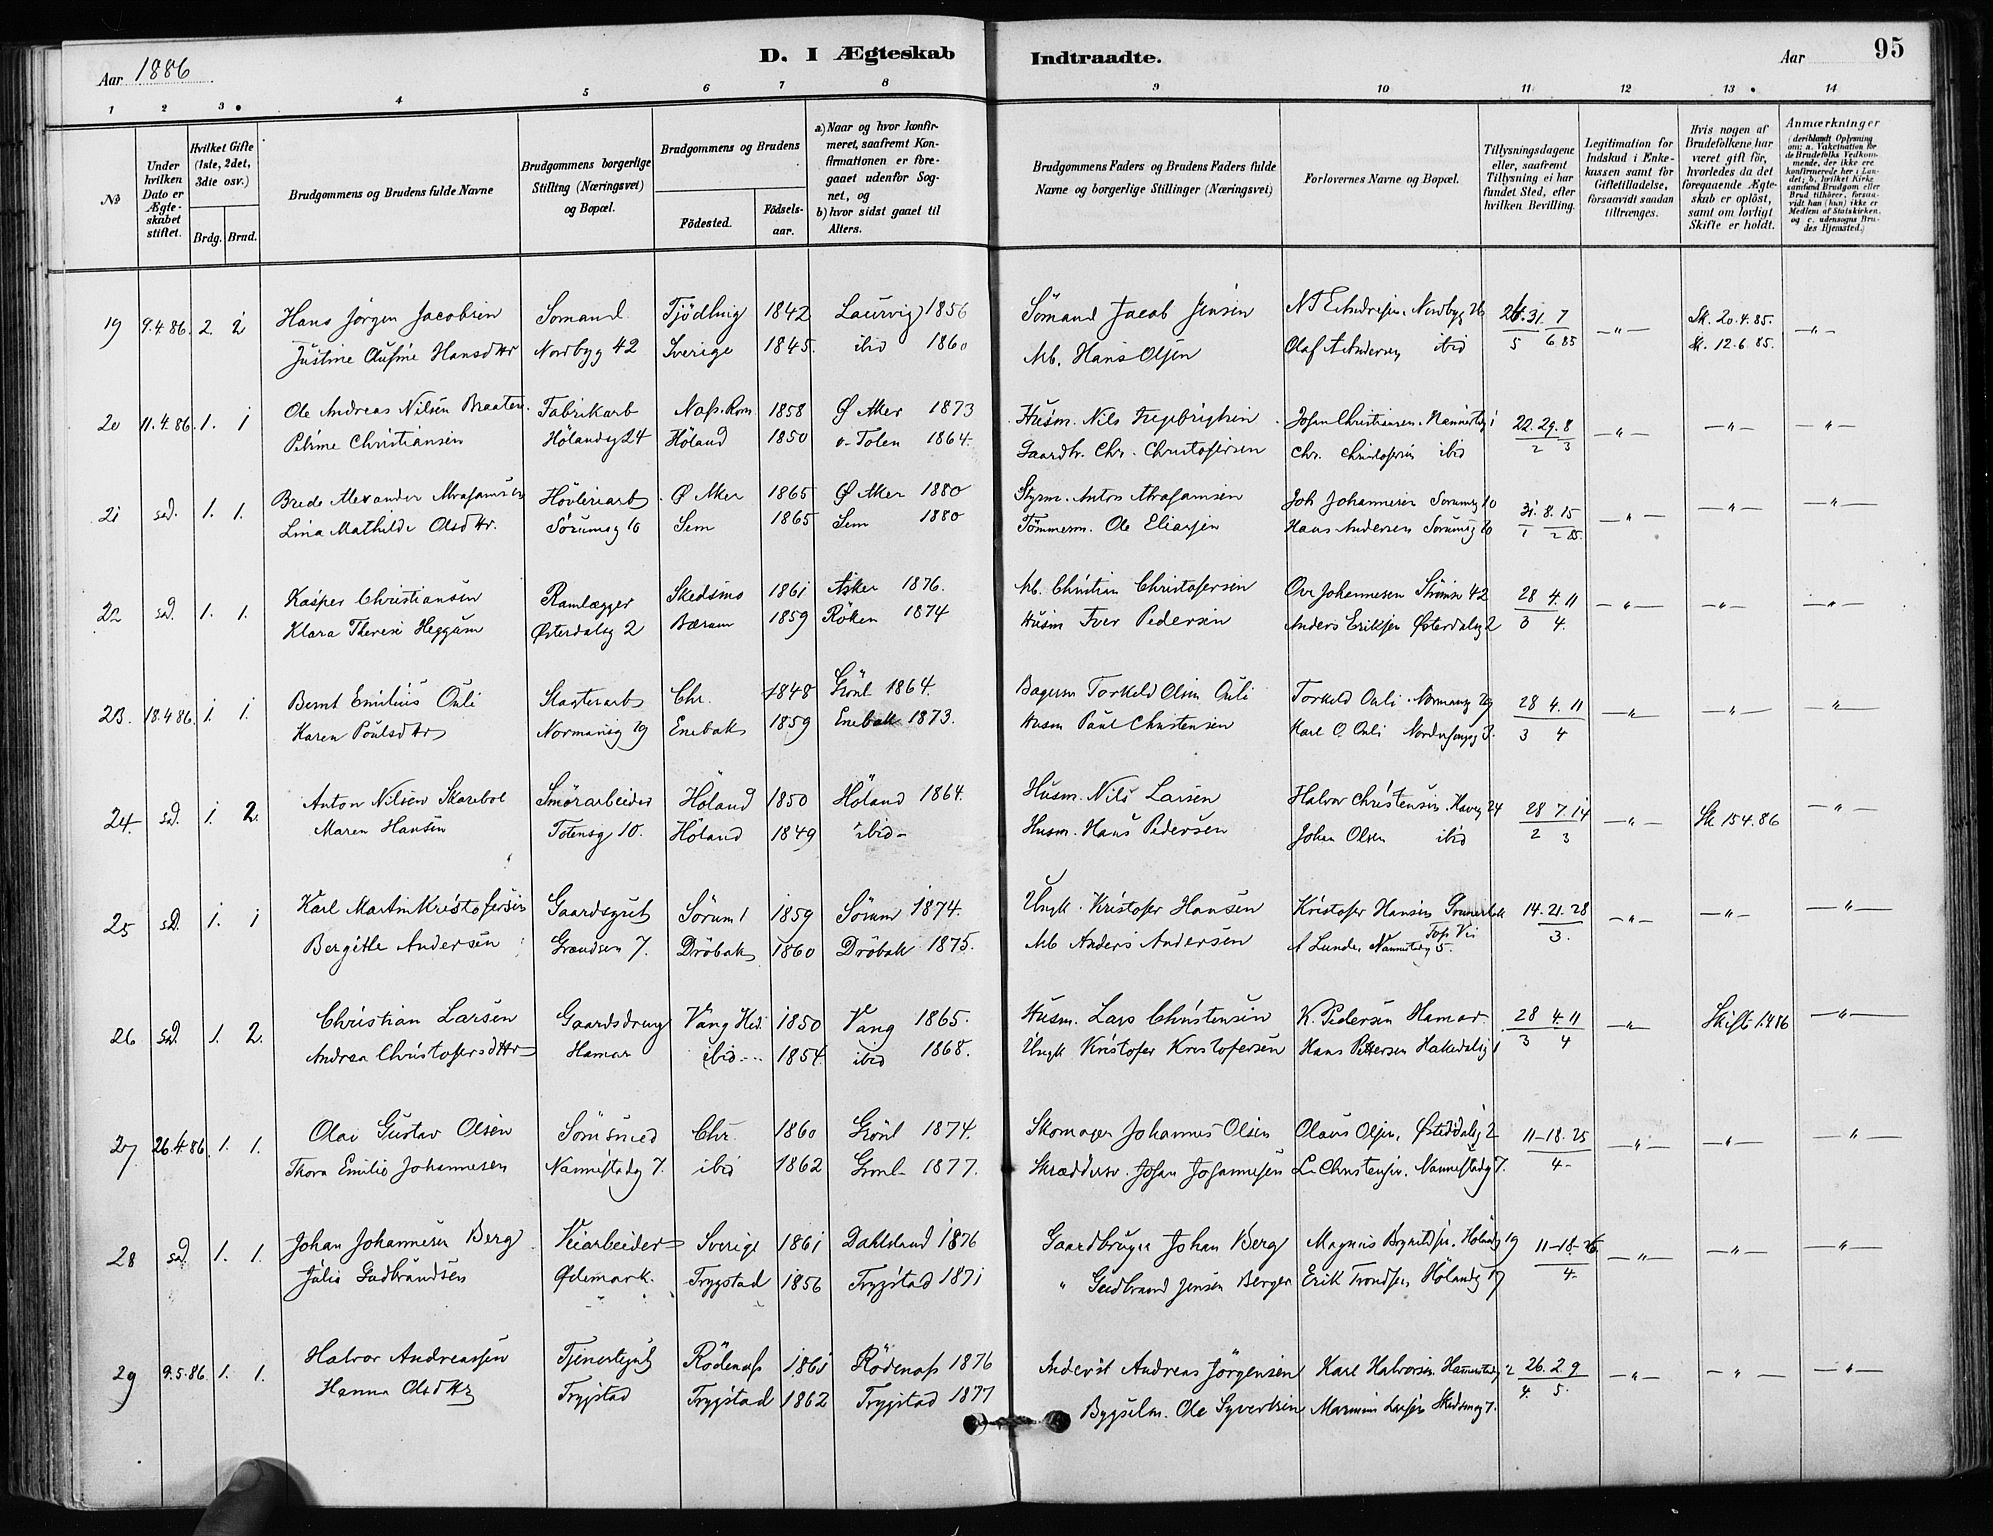 Aar 1886
D. I Ægteskab Indtraadte.
Aar 95
1 2 3 4 5 6 7 8 9 10 11 12 13 14
No
Under hvilken Dato er Ægteskabet stiftet.
Hvilket Gifte (1ste, 2det, 3die osv.)
Brdg. Brud.
Brudgommens og Brudens fulde Navne
Brudgommens borgerlige Stilling (Næringsvei) og Bopæl.
Brudgommens og Brudens
Födested. Födsels-aar.
a) Naar og hvor konfirmeret, saafremt Konfirmationen er foregaaet udenfor Sognet, og
b) hvor sidst gaaet til Alters.
Brudgommens Faders og Brudens Faders fulde Navne og borgerlige Stillinger (Næringsvei)
Forlovernes Navne og Bopæl.
Tillysningsdagene eller, saafremt Tillysning ei har fundet Sted, efter hvilken Bevilling.
Legitimation for Indskud i Enkekassen samt for Giftetilladelse, forsaavidt saadan tiltrænges.
Hvis nogen af Brudefolkene har været gift før, hvorledes da det foregaaende Ægteskab er oplöst, samt om lovligt Skifte er holdt.
Anmærkninger (deriblandt Oplysning om: a. Vakcination for de Brudefolks Vedkommende, der ikke ere konfirmerede her i Landet; b. hvilket Kirkesamfund Brudgom eller Brud tilhörer, forsaavidt han (hun) ikke er Medlem af Statskirken, og c. udensogns Brudes Hjemsted.)
19 9.4.86. 2. 2 Hans Jørgen Jacobsen Sömand Tjödling 1842 Laurvig 1856 Sömand Jacob Jensen Nordbyg 31. 7 —„— Sk. 20.4.85. —„—
Nordbyg 42 Sverige 1845. ibid 1860 Arb. Hans Olsen Olaf A Andersen ibid 5 6 85 Sk. 12.6.85.
20 11.4.86. 1. 1 Ole Andreas Nilsen Braaten Fabrikarb Næs. Rom. 1858 Ø Aker 1873 Husm. Nils 22. 29. 8 —„— —„— —„—
Petrine Christiansen Hølandsg 24 Høland 1850 1864. Gaardbr. Chr. Christofersen Chr. Christofersen ibid 2 3
21 sd. 1. 1. Brede Alexander Abrahamsen Høvleriarb Ø Aker 1865 Ø Aker 1880 Styrm. Anton Abrahamsen Joh Johannesen Sorumsg 10 31. 8. 15 —„— —„— —„—
Lina Mathilde Olsdttr. Sörumsg 10 Sem 1865 Sem 1880 Tömmerm. Ole Eliassen Hans Andersen Sorumsg 10 1 2 85.
22 sd. 1. 1. Kasper Christiansen Ramlægger Skedsmo 1861 Asker 1876. Arb. Christian Christofersen Ove Johannesen 42 28 4. 11 —„— —„— —„—
Klara Therese Heggum Østerdalsg 2 Bærum 1859 Röken 1874 Husm Iver Pedersen Anders Eriksen Østerdalsg 2 3 4.
23. 18.4.86. 1. 1. Bernt Emilius Ouli Slagterarb Chr. 1848 Grönl 1864. Bagersv Torkeld Olsen Ouli Torkeld Ouli. Normansg 19 28 4. 11 —„— —„— —„—
Karen Poulsdttr Normansg 19 Enebak 1859 Enebak 1873. Husm Paul Christensen Karl O. Ouli 3. 3 4
24. sd. 1. 2. Anton Nilsen Skarebol Smörarbeider Höland 1850 Höland 1864. Husm. Nils Larsen Halvor Christensen. 24 28 7. 14 —„— Sk 15 4. 86 —„—
Maren Hansen Totensg 10. Höland 1849 ibid— Husm. Hans Pedersen Johan Olsen ibid 2 3
25 sd. 1. 1 Karl Martin Kristofersen Gaardsgut Sörum 1859 Sörum 1874. Kristofer Hansen Kristofer Hansen 14. 21. 28 —„— —„— —„—
Bergitte Andersen Grændsen 7. Dröbak 1860 Dröbak 1875. Arb Anders Andersen A Lunde, Nannestadg 5. 3.
26 sd. 1. 2. Christian Larsen Gaardsdreng Vang Hed. 1850 Vang 1865. Husm. Lars Christensen K. Pedersen Hamar. 28 4. 11 —„— Skifte 1.4 86 —„—
Andrea Christofersdttr Hamar ibid — 1854. ibid 1868. Kristofer Kristofersen Hans Pettersen Hakedalsg 1 3 4
27 26.4.86. 1. 1. Olai Gustav Olsen Sömsmed Chr. 1860 Grönl 1874. Skomager Johannes Olsen Olaus Olsen, Østerdalsg 2 11—18. 25 —„— —„— —„—
Thora Emilie Johannesen Nannestadg 7. ibid 1862 Grönl— 1877. Skræddersv. Johan Johannesen L. Christensen. Nannestadg 7. 4—
28 sd. 1. 1. Johan Johannesen Berg Veiarbeider Sverige 1861 Dahlsland 1876 Gaardbruger Johan Berg Magnus Hölandsg 19 11—18. 26 —„— —„— —„—
Julie Gudbrandsen Ødemark. Trygstad 1856 Trygstad 1871 „ Gudbrand Jensen Berger Erik Trondsen, Hölandsg 17 4.
29 9.5.86. 1. 1. Halvor Andreassen Tjenestegut Rödenæs 1861 Rödenæs 1876 Inderst Andreas Jörgensen Karl Halvorsen 2 26. 2. 9 —„— —„— —„—
Hanna Olsdttr Trygstad Trygstad 1862 Trygstad 1877 Bygselm. Ole Syvertsen Larsen Skedsmog 7. 4. 5.